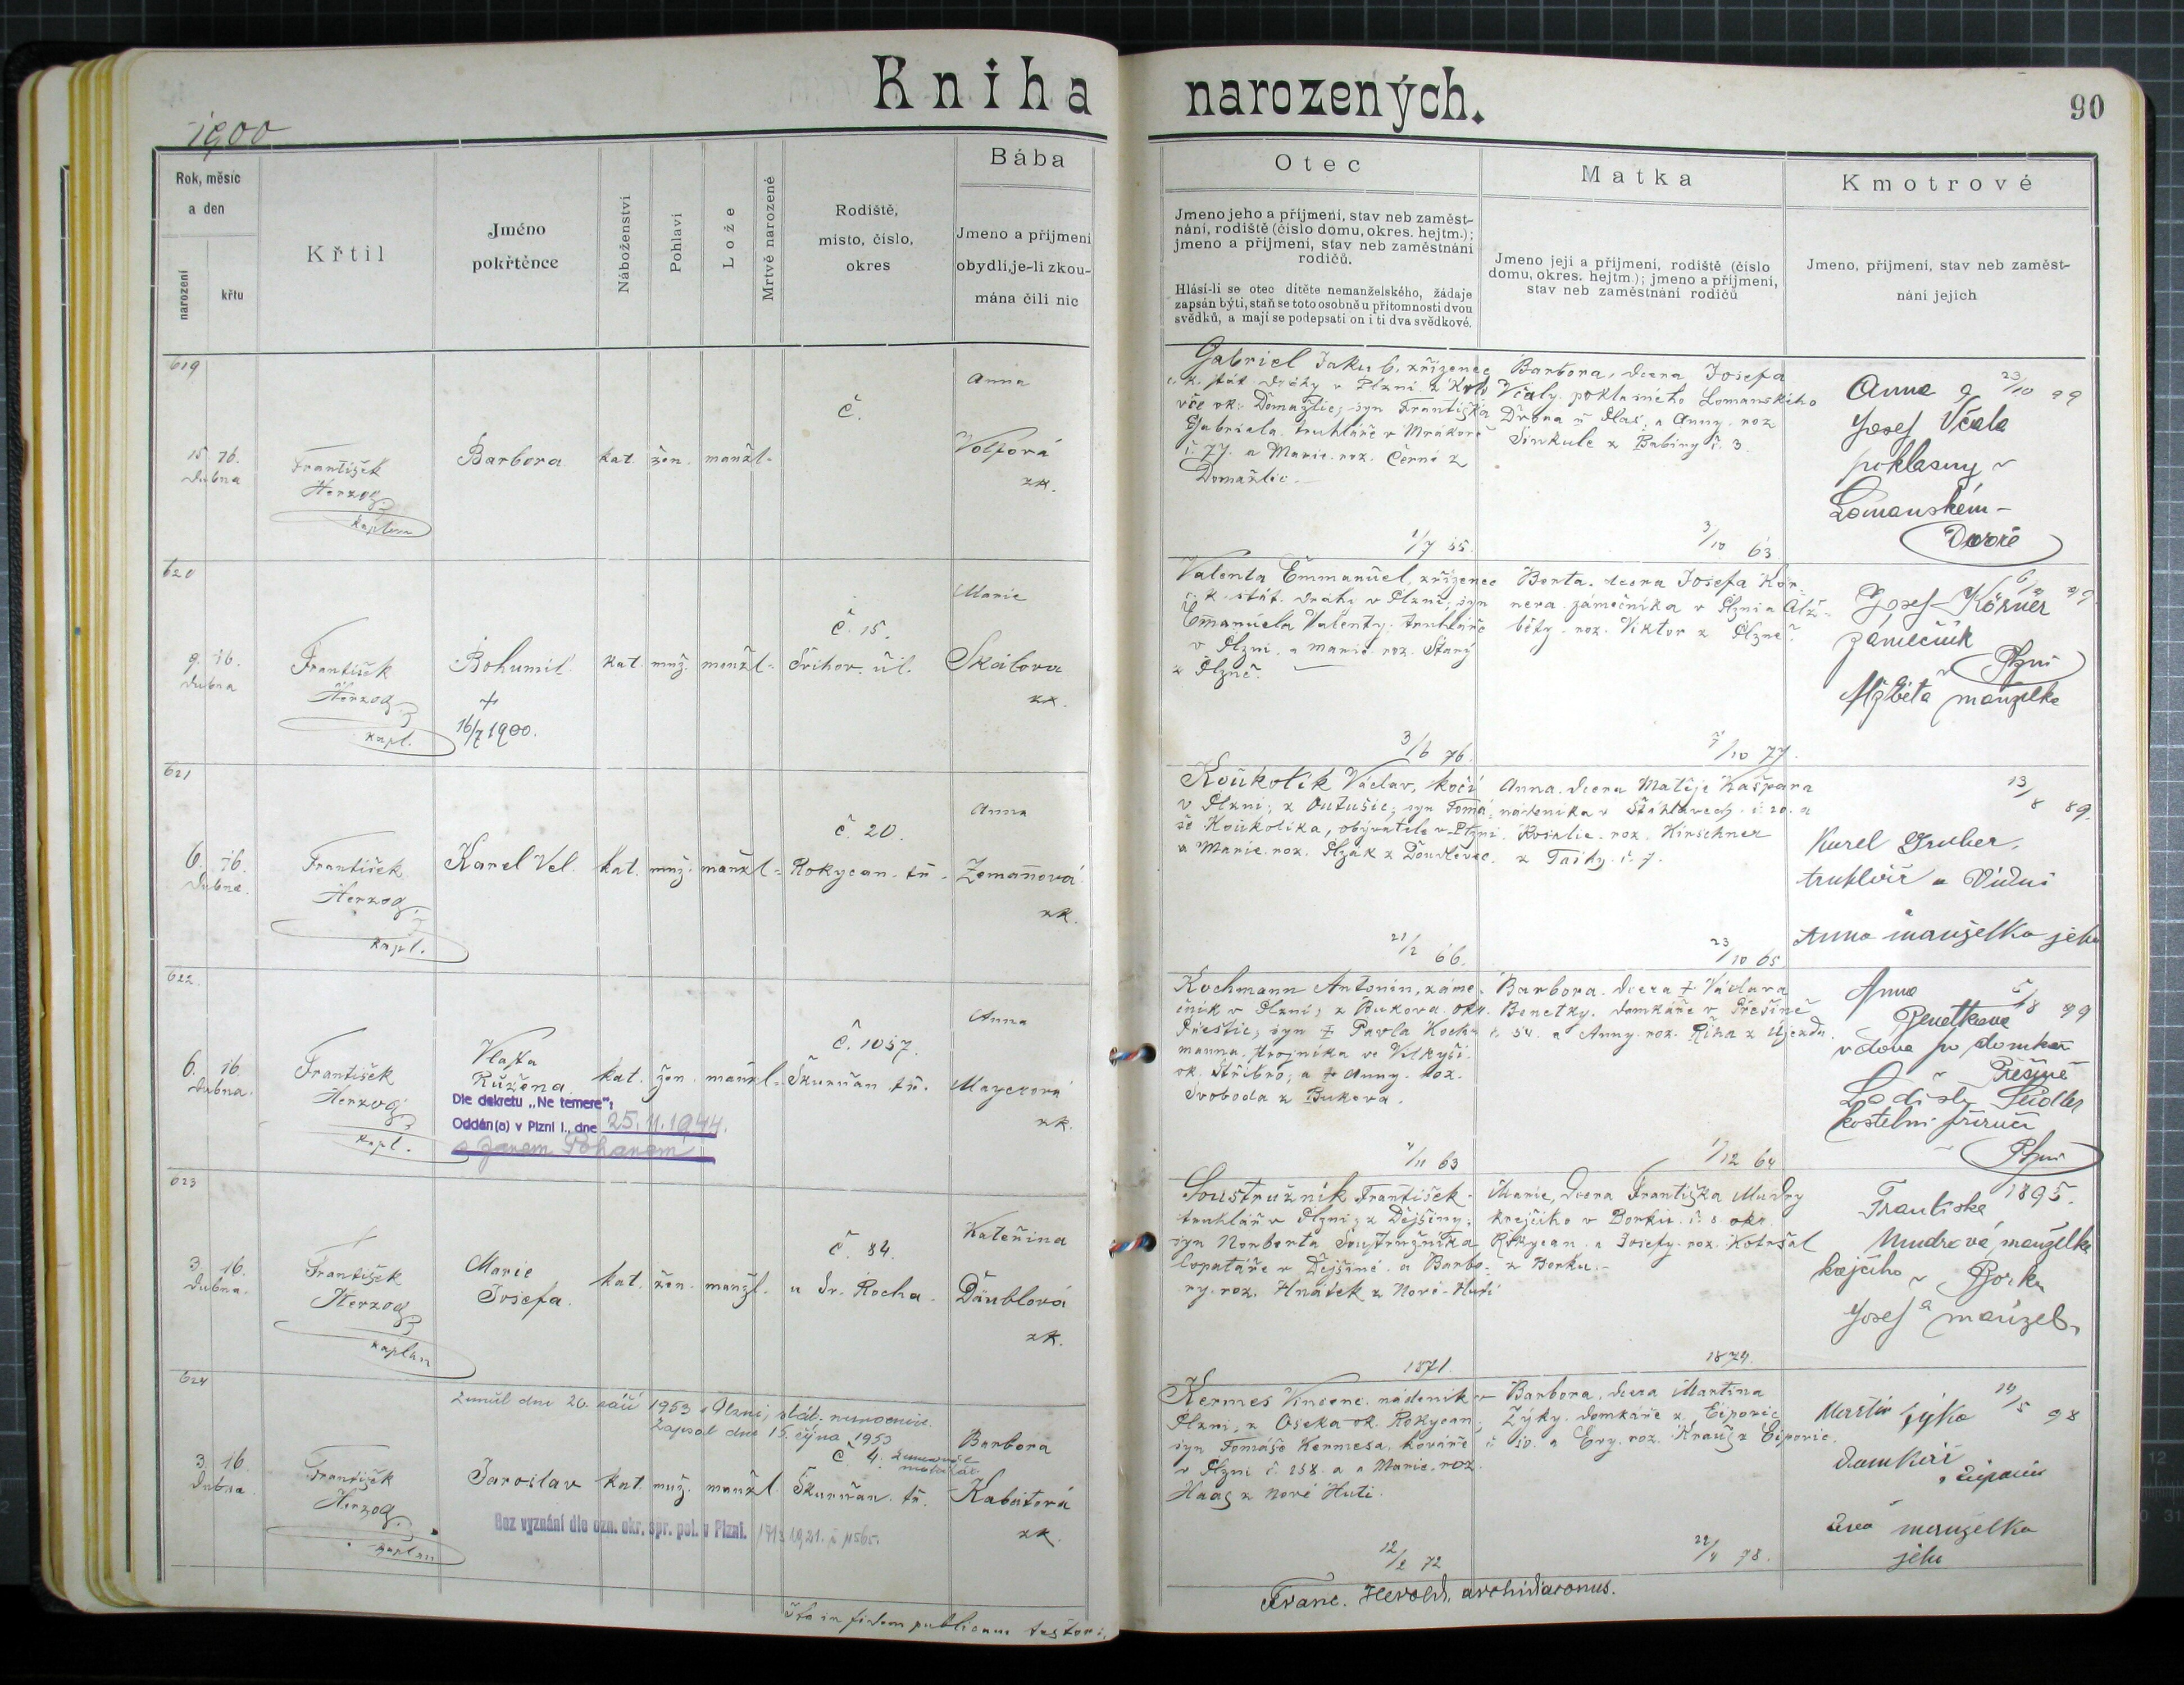 Kniha narozených.
90
1900
Rok, měsíc
a den
narození
křtu
Křtil
Jméno
pokřtěnce
Náboženství
Pohlaví
Lože
Mrtvě narozené
Rodiště,
místo, číslo,
okres
Bába
Jmeno a příjmení
obydlí, je-li zkou-
mána čili nic
Otec
Jmeno jeho a příjmení, stav neb zaměst-
nání, rodiště (číslo domu, okres. hejtm.);
jmeno a příjmení, stav neb zaměstnání
rodičů.
Hlásí-li se otec dítěte nemanželského, žádaje
zapsán býti, staň se toto osobně u přítomnosti dvou
svědků, a mají se podepsati on i ti dva svědkové.
Matka
Jmeno její a příjmení, rodiště (číslo
domu, okres. hejtm.); jmeno a příjmení,
stav neb zaměstnání rodičů
Kmotrové
Jmeno, příjmení, stav neb zaměst-
nání jejich
619
15. 16.
dubna
František
Herzog
kaplan
Barbora
kat. žen. manžl.
č.
Anna
Volfová
zk.
Gabriel Jakub, zřízenec
c. k. stát. dráhy v Plzni z
vče ok. Domažlic; syn Františka
Gabriela, truhláře v Mrákově
č. 77. a Marie roz. Černé z
Domažlic.
1/7 65.
Barbora, dcera Josefa
Včaly, poklasného Lomanského
Dvora u Plas; a Anny roz.
Sinkule z Babiny č. 3.
3/10 63
Anna a 23/10 99
Josef Včala
poklasny v
Lomanském
Dvoře
620
9. 16.
dubna
František
Herzog
kapl.
Bohumil
+
16/7 1900.
kat. muž. manžl.
č. 15.
Švihov. ul.
Marie
Skálova
zk.
Valenta Emmanuel, zřízenec
c. k. stát. dráhy v Plzni; syn
Emanuela Valenty, truhláře
v Plzni, a Marie roz. Starý
z Plzně.
3/6 76.
Berta, dcera Josefa Kör-
nera, zámečníka v Plzni a Alž-
běty roz. Viktor z Plzně.
7/10 77.
Josef Körner
zámečník
v Plzni
Alžběta manželka
621
6. 16.
dubna.
František
Herzog
kapl.
Karel Vel.
kat. muž. manžl.
č. 20.
Rokycan. tř.
Anna
Zemanová
zk.
Koukolík Václav, kočí
v Plzni; z Outušic; syn Tomá-
še Koukolíka, obývatele v Plzni
a Marie roz. Plzák z Doudlevec.
21/2 66.
Anna, dcera Matěje Kašpara
nádeníka v Šťáhlavech č. 20. a
Rosalie roz. Hirschner
z č. 7.
23/10 65.
13/8 89.
Karel Gruber,
truhlář a
Anna manželka jeho
622.
6. 16.
dubna.
František
Herzog
kapl.
Vlasta
Růžena
Dle dekretu „Ne temere":
Oddán(a) v Plzni I., dne 25. 11. 1944.
s Janem Pohanem
kat. žen. manžl.
Č. 1057.
Škurňan. tř.
Anna
Mayerová
zk.
Kochmann Antonín, záme-
čník v Plzni; z Bukova okr.
Přeštic, syn + Pavla Koch-
manna, strojníka ve Vlkýši
ok. Stříbro; a + Anny roz.
Svoboda z Bukova.
4/11 63
Barbora, dcera + Václava
Benetky, domkáře v Přešíně
č. 54. a Anny roz. Říha z Újezda.
1/12 64
Anna
Benetkova
vdova po domkáři
v Přešíně
kostelní
Plzni
623
3. 16.
dubna.
František
Herzog
kaplan
Marie
Josefa.
kat. žen. manžl.
č. 84.
u Sv. Rocha
Kateřina
Däublová
zk.
Soustružník František
truhlář v Plzni; z Dejšiny;
syn Norberta Soustružníka
lopatáře v Dejšině, a Barbo-
ry roz. Hnátek z Nové Huti
1871.
Marie, dcera Františka Mudry
krejčího v Borku č. 8. okr.
Rokycan a Josefy roz. Kotršal
z Borku.
1874.
Františka 1895.
Mudrová manželka
krejčího v Borku
Josef a manžel
624
3. 16.
dubna
František
Herzog
kaplan
Zemřel dne 20. září 1953 v Plzni, stát. nemocnice.
Zapsal dne 15. října 1953
Jaroslav
kat. muž. manžl.
č. 4.
Škurňan. tř.
Barbora
Kabátová
zk.
Bez vyznání dle ozn. okr. spr. pol. v Plzni.
Kermes Vincenc, nádeník v
Plzni, z Oseka ok. Rokycan;
syn Tomáše Kermesa, kováře
v Plzni č. 158. a Marie roz.
Haas z Nové Huti.
12/2 72
Barbora, dcera Martina
Žýky, domkáře z Ejpovic
č. 50. a Evy roz. Kraus z Ejpovic.
Martin Žýka 14/5 98
domkář
v Ejpovicích
Eva manželka
jeho
Ita in fidem publicam testor:
Franc. Herold, archidiaconus.